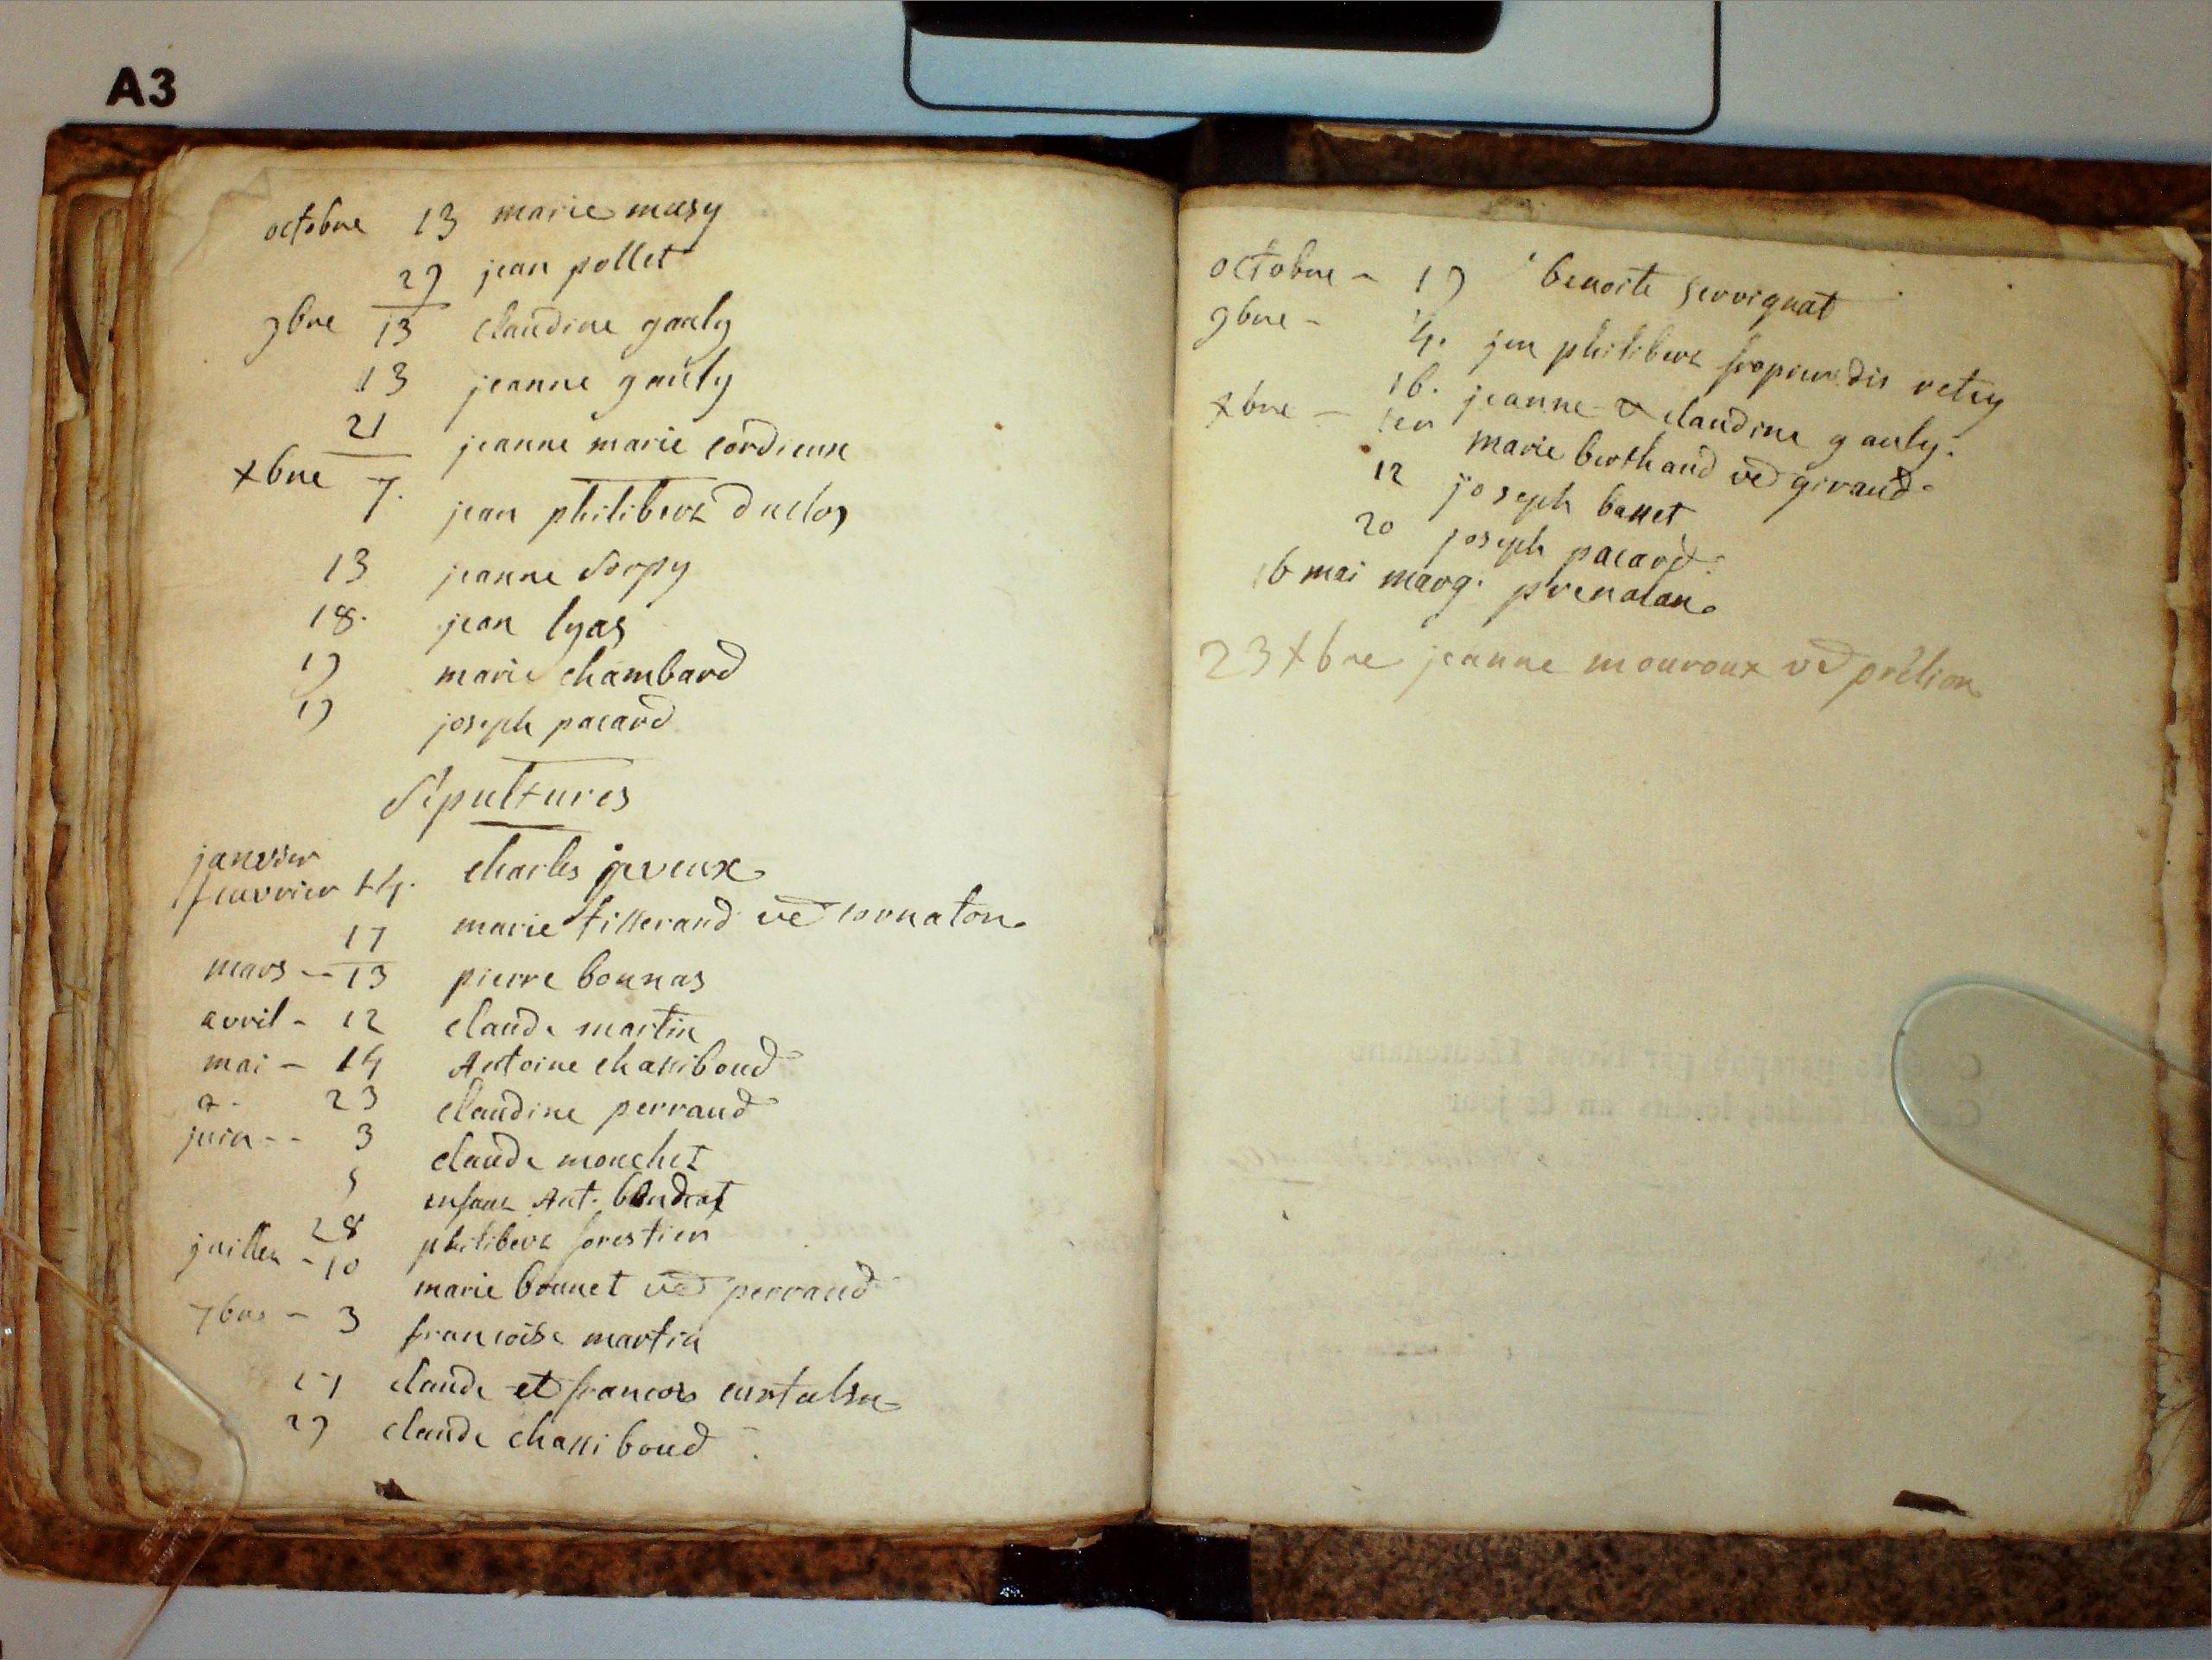 A3
octobre 13 marie musy
29 jean pollet
9bre 13 claudine gauly
13 jeanne gauly
21 jeanne marie cordieux
xbre 7. jean philibert duclos
13 jeanne sorpy
18. jean lyas
19 marie chambard
19 joseph pacard
Sepultures
janvier
feuvrier 14. charles jeveux
17 marie tisserand ve cornaton
mars - 13 pierre bounas
avril - 12 claude martin
mai - 14 Antoine chassiboud
23 claudine perraud
juin - - 3 claude mouchet
5 enfant Ant.
28 philibert forestier
juillet - 10 marie bonnet ve perraud
7bre - 3 francoise martin
claude et francois
29 claude chassiboud
octobre - 19 benoite servignat
9bre - 4. jen philibert dit retey
16. jeanne & claudine gauly.
xbre - 1er marie berthaud ve giraud
12 joseph basset
20 joseph pacard
16 mai marg. prenalan
23 xbre jeanne mouroux ve prélion